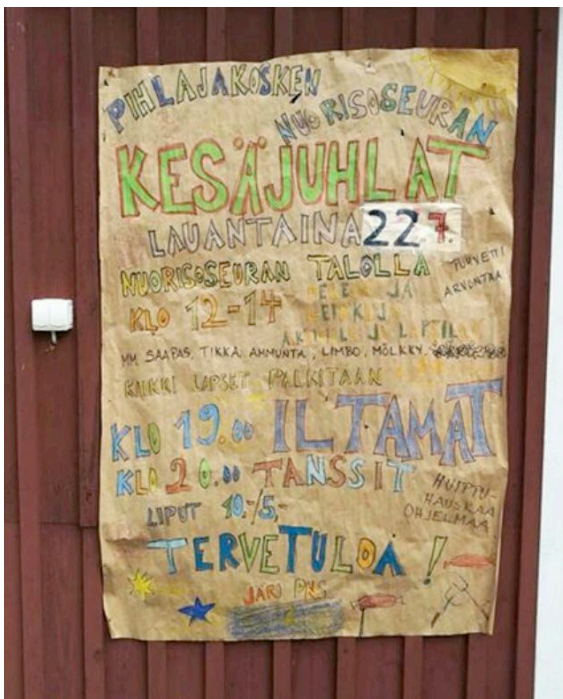 PIHLAJAKOSKEN
NUORISOSEURAN
KESÄJUHLAT
LAUANTAINA 22.7.
NUORISOSEURAN TALOLLA
KLO 12-14
JA
ARVONTAA
MM. SAAPAS, TIKKA, AMMUNTA, LIMBO, MÖLKKY,
KAIKKI LAPSET PALKITAAN
KLO 19.00 ILTAMAT
KLO 20.00 TANSSIT
LIPUT 10,-/5,-
HUITTU-
HAUSKAA
OHJELMAA
TERVETULOA!
JÄRJ PNS